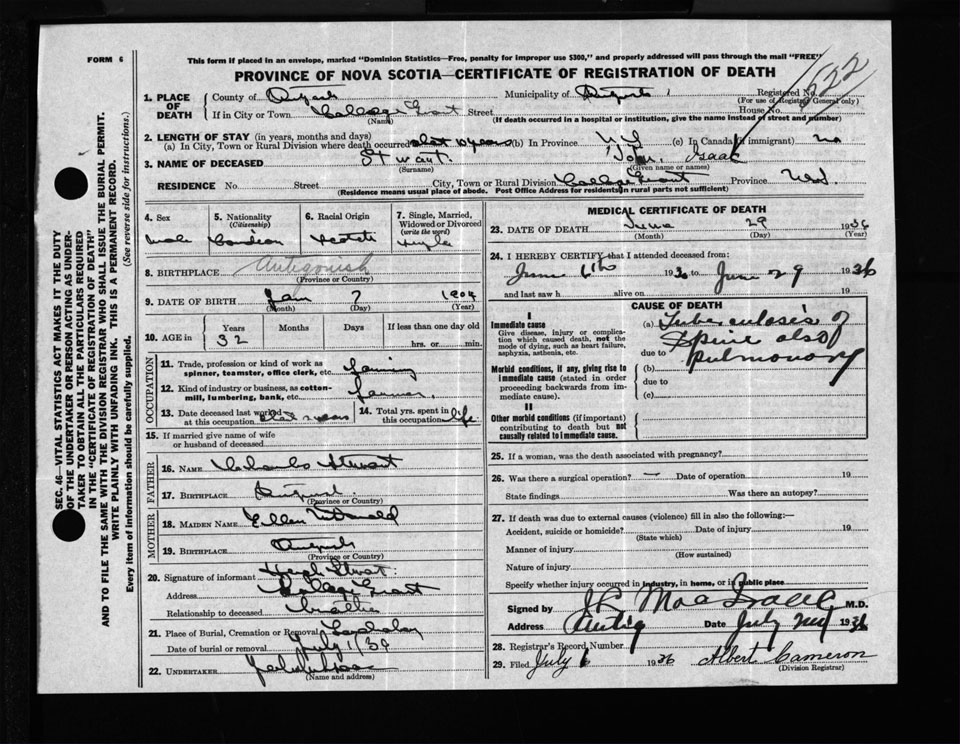 FORM 6
This form if placed in an envelope, marked "Dominion Statistics—Free, penalty for improper use $300," and properly addressed will pass through the mail "FREE"
PROVINCE OF NOVA SCOTIA—CERTIFICATE OF REGISTRATION OF DEATH
522
1. PLACE OF DEATH County of Municipality of Registered No.
(For use of Registrar General only)
If in City or Town College Grant Street House No.
(Name) (If death occurred in a hospital or institution, give the name instead of street and number)
2. LENGTH OF STAY (in years, months and days)
(a) In City, Town or Rural Division where death occurred 10 years (b) In Province (c) In Canada (if immigrant) no
3. NAME OF DECEASED Stwart John Isaac
(Surname) (Given name or names)
RESIDENCE No. Street City, Town or Rural Division College Grant Province N.S.
(Residence means usual place of abode. Post Office Address for residents in rural parts not sufficient)
4. Sex 5. Nationality (Citizenship) 6. Racial Origin 7. Single, Married, Widowed or Divorced (write the word)
male single
8. BIRTHPLACE Antigonish
(Province or Country)
9. DATE OF BIRTH Jan ? 1904
(Month) (Day) (Year)
10. AGE in Years Months Days If less than one day old
32 hrs. or min.
OCCUPATION
11. Trade, profession or kind of work as spinner, teamster, office clerk, etc. farming
12. Kind of industry or business, as cotton-mill, lumbering, bank, etc. farmer
13. Date deceased last worked at this occupation 14. Total yrs. spent in this occupation life
15. If married give name of wife or husband of deceased
FATHER
16. NAME Stwart
17. BIRTHPLACE
(Province or Country)
MOTHER
18. MAIDEN NAME Ellen McDonald
19. BIRTHPLACE
(Province or Country)
20. Signature of informant Stwart
Address College Grant
Relationship to deceased
21. Place of Burial, Cremation or Removal
Date of burial or removal July 1/36
22. UNDERTAKER
(Name and address)
MEDICAL CERTIFICATE OF DEATH
23. DATE OF DEATH June 29 1936
(Month) (Day) (Year)
24. I HEREBY CERTIFY that I attended deceased from:
June 1936 to June 29 1936
and last saw h alive on 19
CAUSE OF DEATH
I
Immediate cause
Give disease, injury or complication which caused death, not the mode of dying, such as heart failure, asphyxia, asthenia, etc.
(a) Tuberculosis of Spine also pulmonary
due to
Morbid conditions, if any, giving rise to immediate cause (stated in order proceeding backwards from immediate cause).
(b)
due to
(c)
II
Other morbid conditions (if important) contributing to death but not causally related to immediate cause.
25. If a woman, was the death associated with pregnancy?
26. Was there a surgical operation? — Date of operation 19
State findings Was there an autopsy?
27. If death was due to external causes (violence) fill in also the following:—
Accident, suicide or homicide? Date of injury 19
(State which)
Manner of injury
(How sustained)
Nature of injury
Specify whether injury occurred in industry, in home, or in public place
Signed by M.D.
Address Antig Date July 2nd 1936
28. Registrar's Record Number
29. Filed July 6 1936 Albert Cameron
(Division Registrar)
SEC. 46—VITAL STATISTICS ACT MAKES IT THE DUTY
OF THE UNDERTAKER OR PERSON ACTING AS UNDER-
TAKER TO OBTAIN ALL THE PARTICULARS REQUIRED
IN THE "CERTIFICATE OF REGISTRATION OF DEATH"
AND TO FILE THE SAME WITH THE DIVISION REGISTRAR WHO SHALL ISSUE THE BURIAL PERMIT.
WRITE PLAINLY WITH UNFADING INK. THIS IS A PERMANENT RECORD.
Every item of information should be carefully supplied. (See reverse side for instructions.)